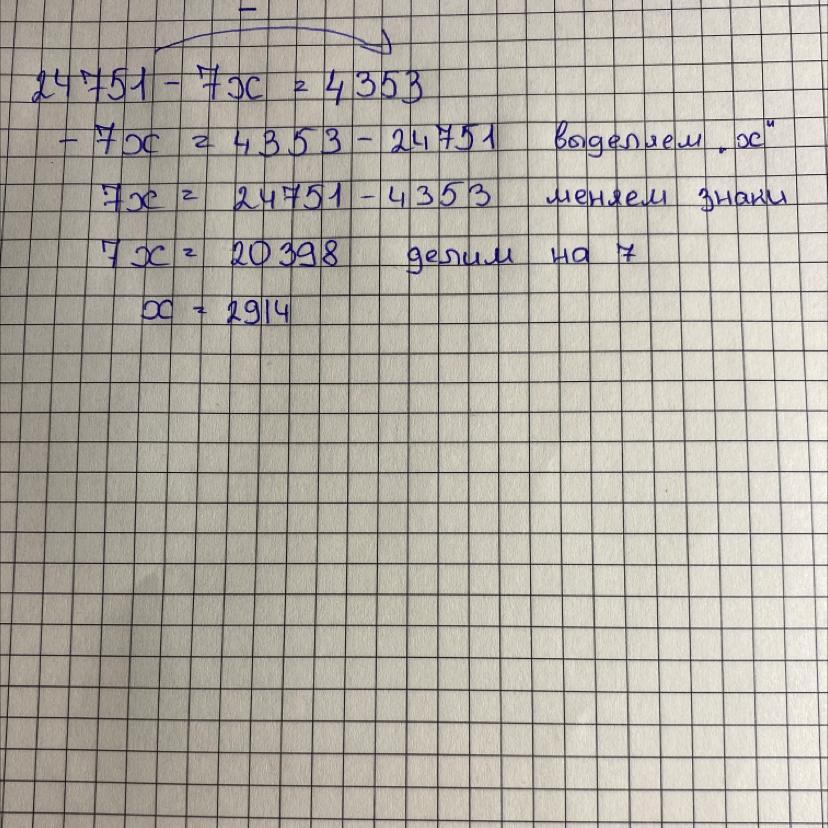 24751 - 7x = 4353
- 7x = 4353 - 24751 выделяем „x"
7x = 24751 - 4353 меняем знаки
7x = 20398 делим на 7
x = 2914